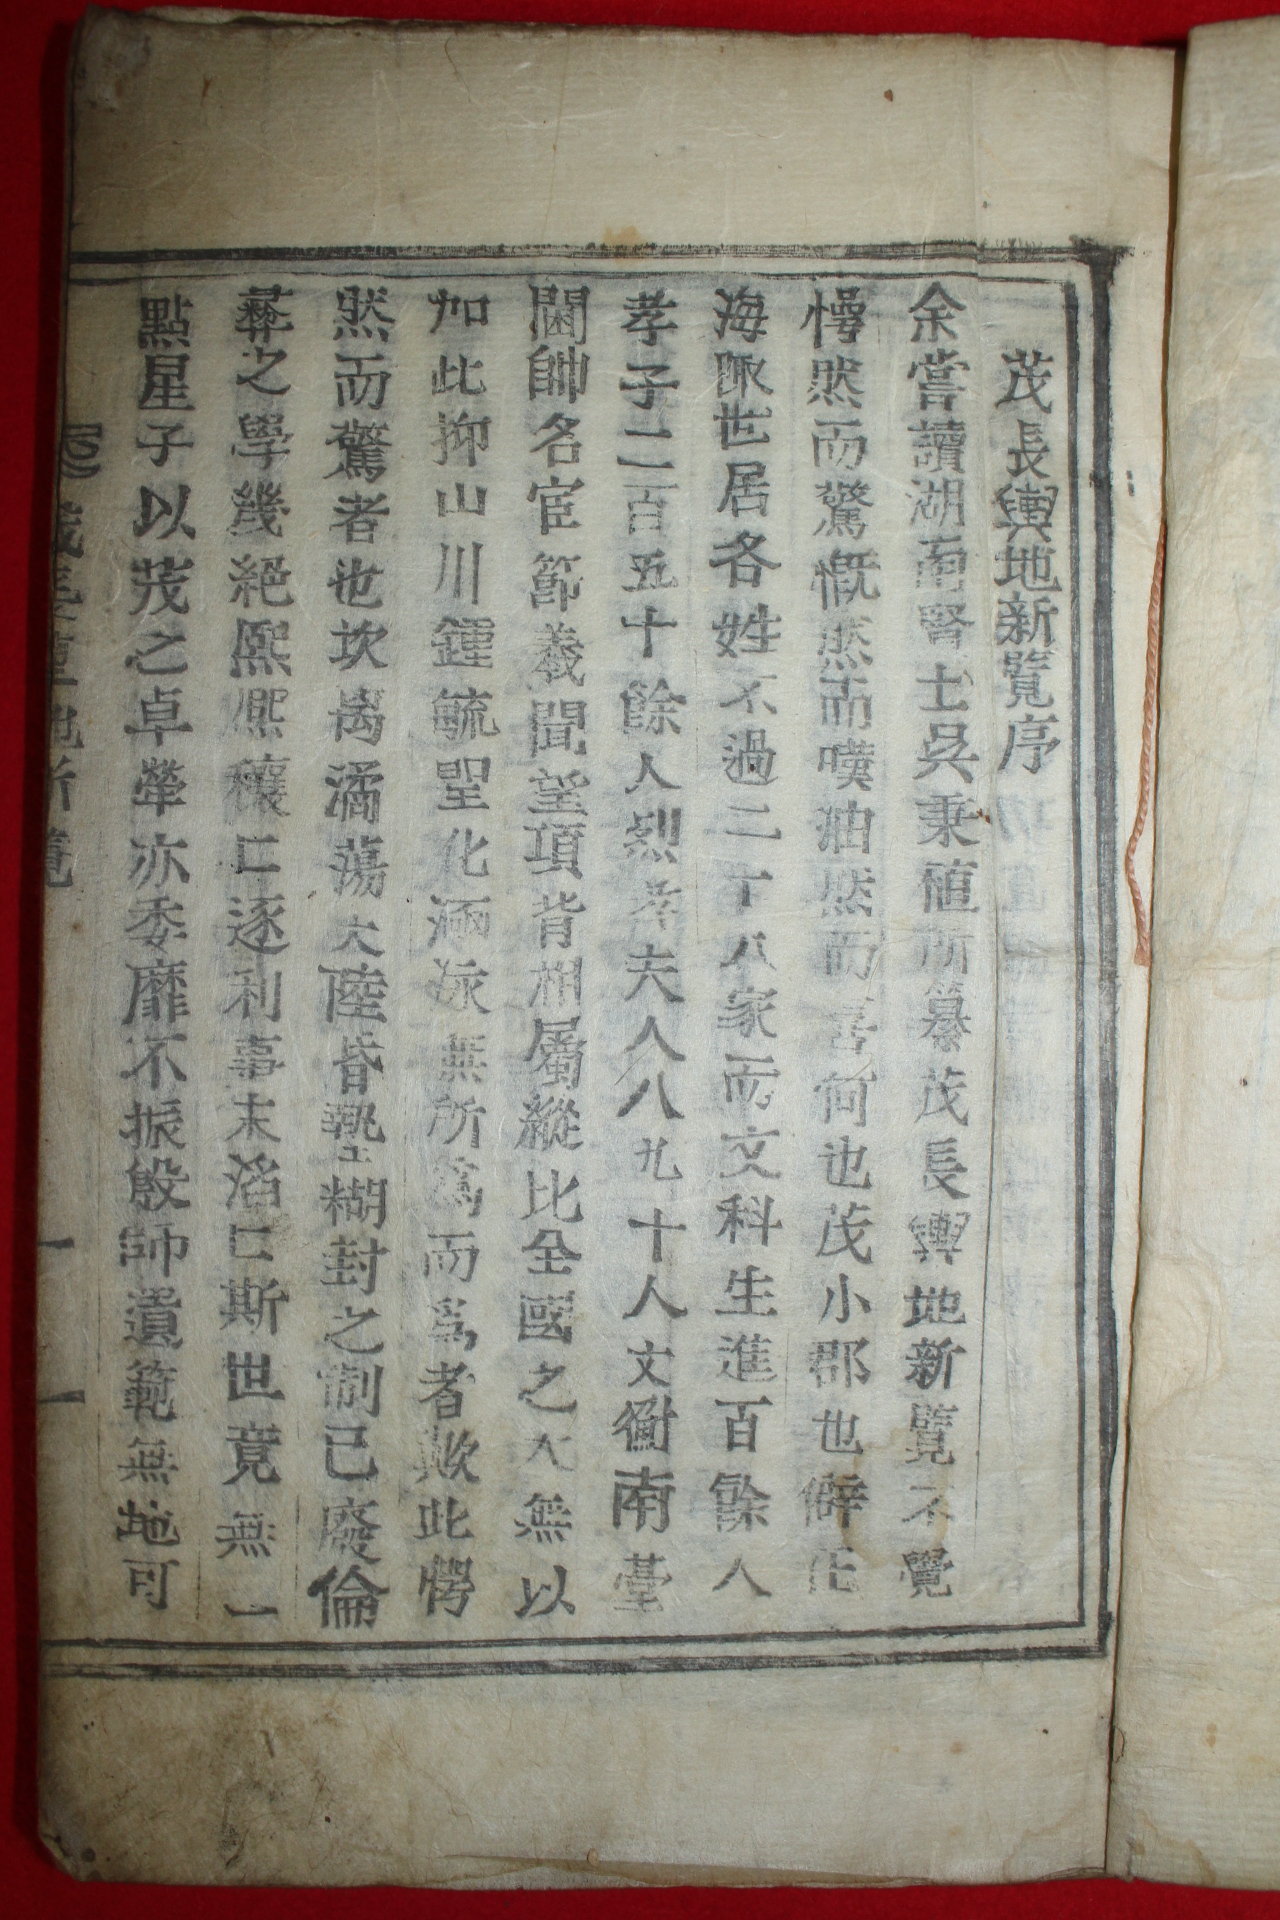 茂長輿地新覽序
余嘗讀湖南腎士吳秉植所纂茂長輿地新覽不覺
愕然而驚慨然而嘆油然而喜何也茂小郡也僻在
海陬世居各姓不過二十八家而文科生進百餘人
孝子二百五十餘人烈孝夫人八九十人文衡南臺
閫帥名宦節義聞望項背相屬縱比全國之大無以
加此抑山川鍾毓聖化涵泳無所爲而爲者歟此愕
然而驚者也坎离潏蕩大陸昏墊糊封之制已廢倫
彝之學幾絕熙熙穰穰匸逐利事末滔匸斯世竟無一
點星子以茂之卓犖亦委靡不振殷師遺範無地可
茂長輿地新覽